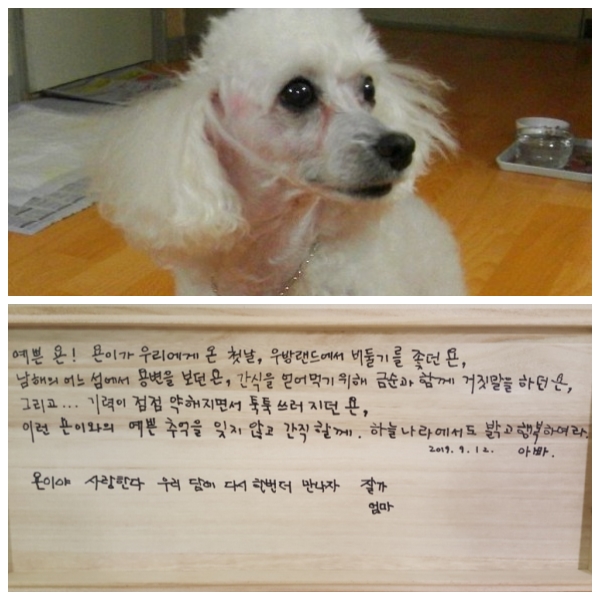 예쁜 욘! 욘이가 우리에게 온 첫날, 우방랜드에서 비둘기를 좇던 욘,
남해의 어느 섬에서 용변을 보던 욘, 간식을 얻어먹기 위해 금순과 함께 거짓말을 하던 욘,
그리고... 기력이 점점 약해지면서 툭툭 쓰러 지던 욘,
이런 욘이와의 예쁜 추억을 잊지 않고 간직 할께. 하늘나라에서도 밝고 행복하여라.
2019. 9. 12. 아빠.
욘이야 사랑한다 우리 담에 다시 한번더 만나자 잘가
엄마